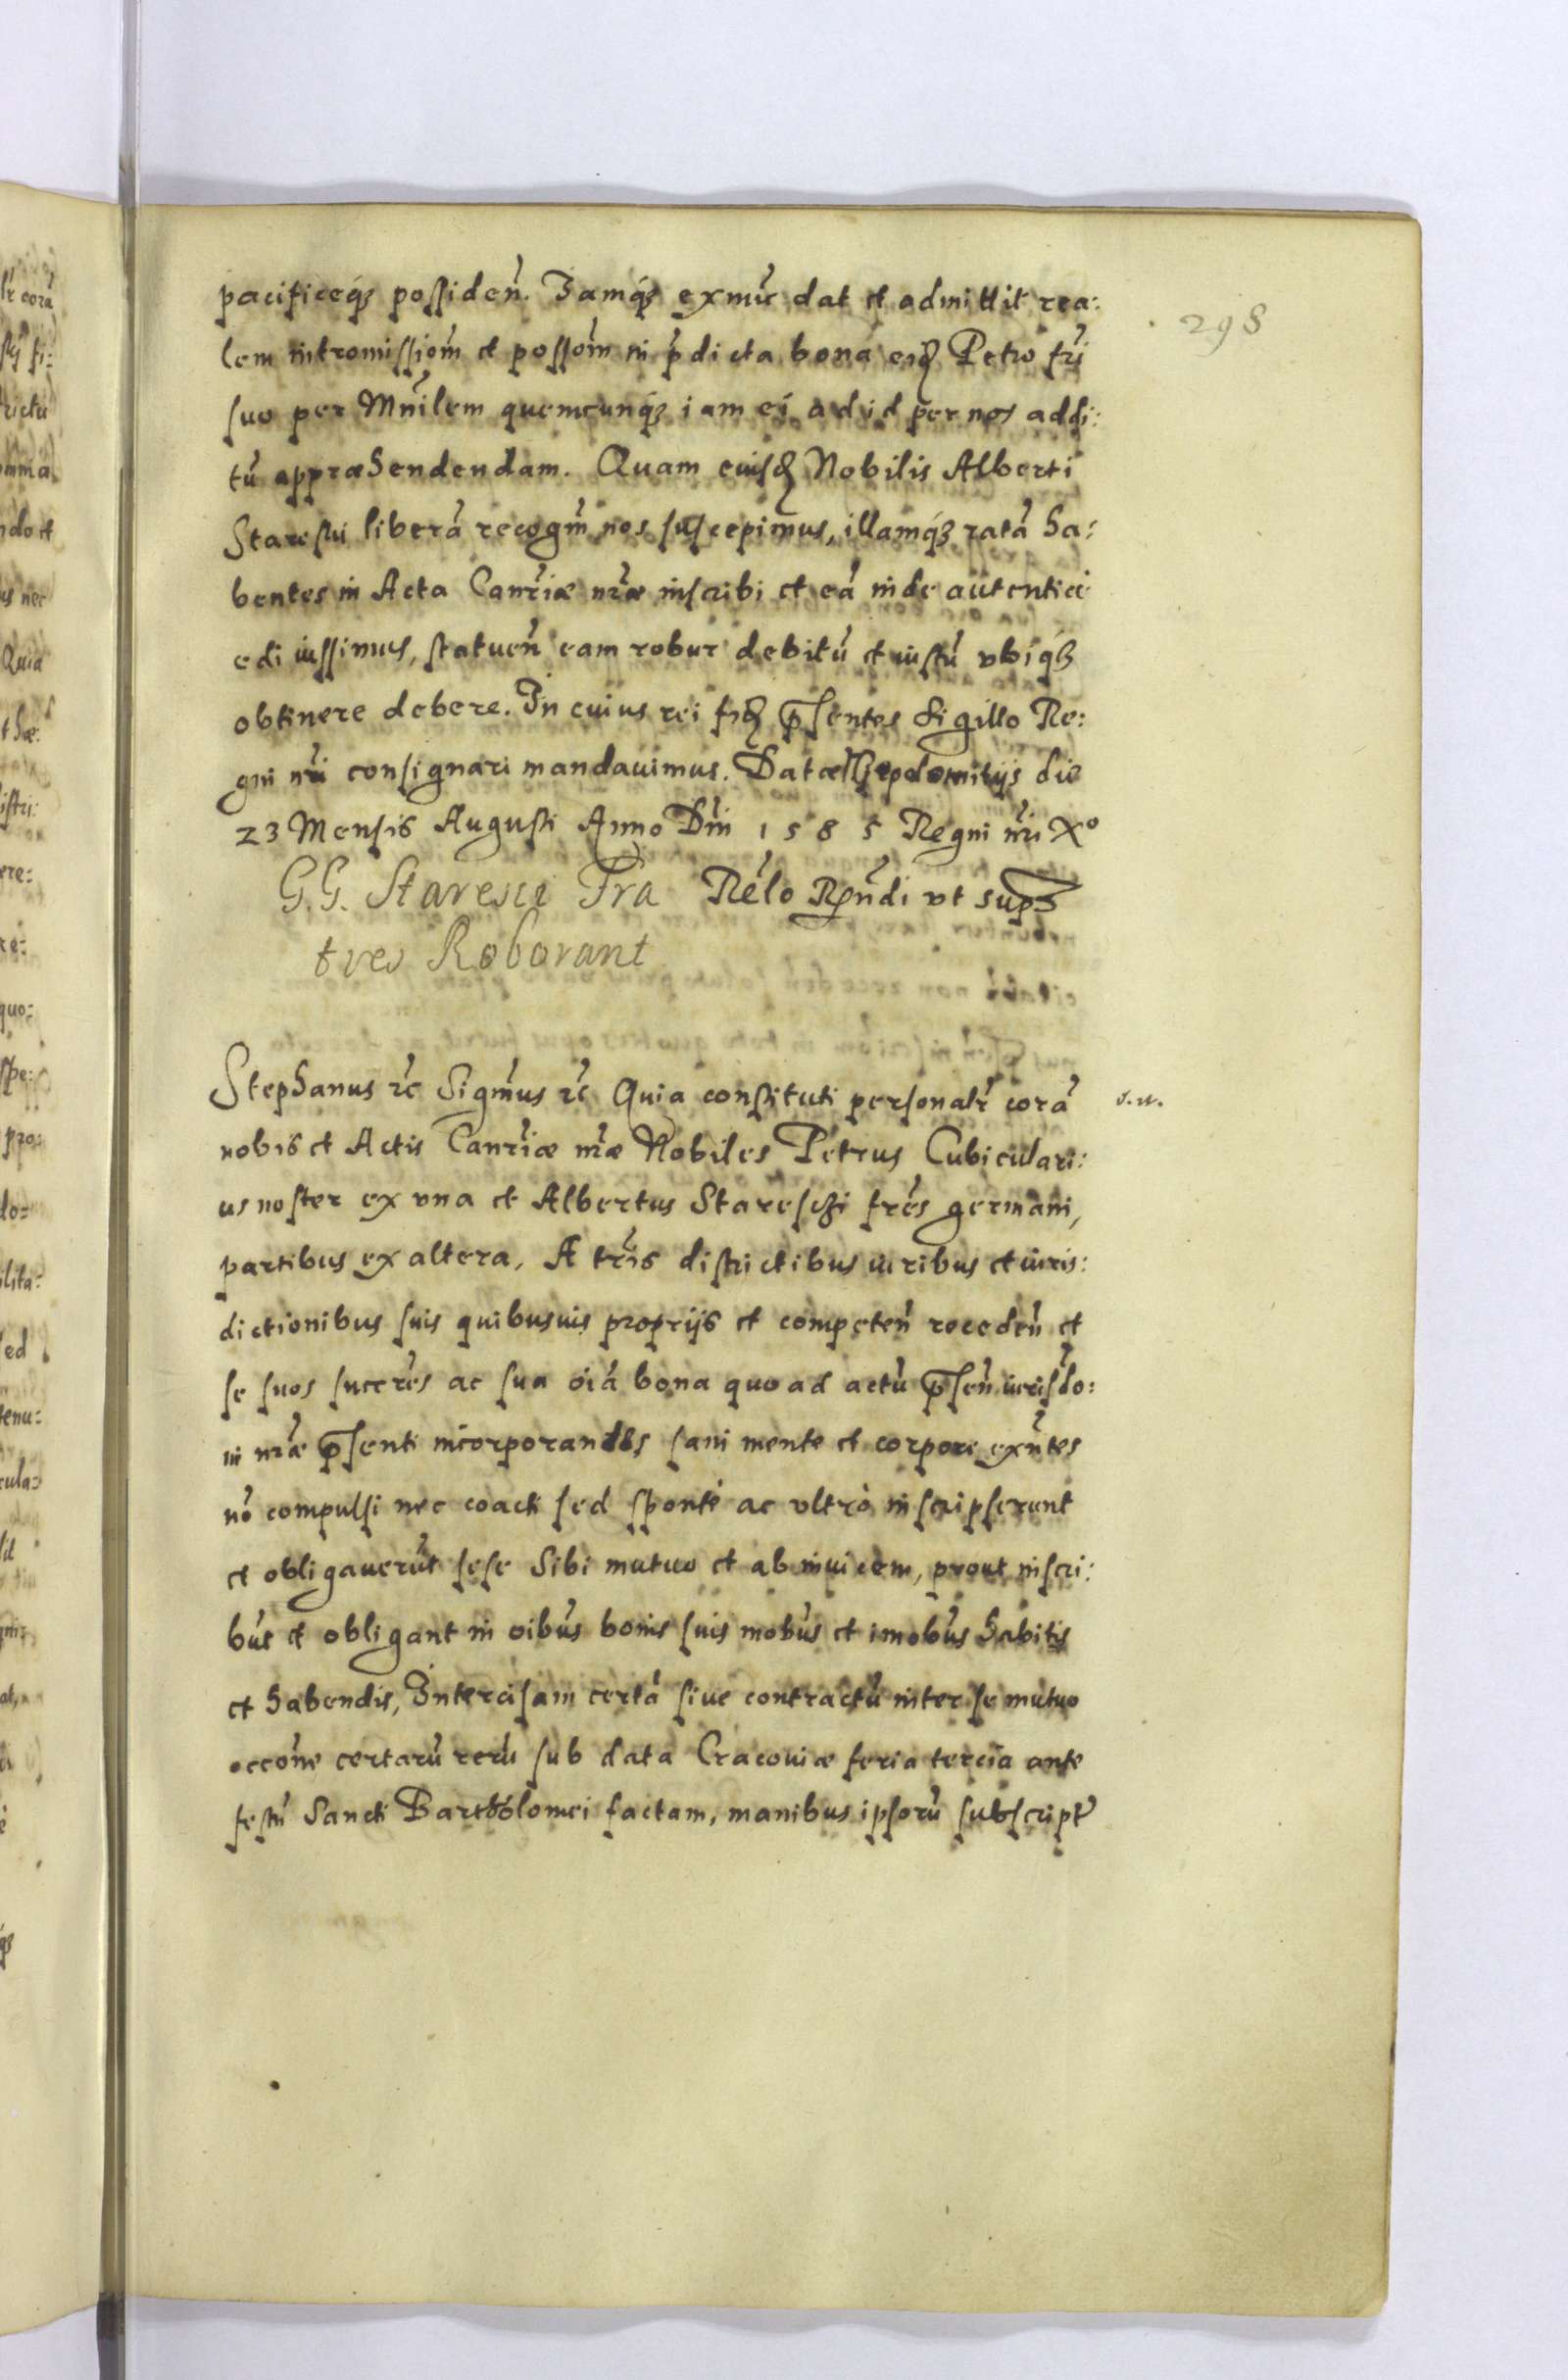 298
pacificeq́ꝫ possideń. Iamq́ꝫ exnuć dat et admittit rea:
lem intromissioḿ et possoḿ in p̄dicta bona eiđ Petro fŕi
suo per Mńilem quemcunq́ꝫ iam ei ad id per nos addi:
tū appræhendendam. Quam eiusđ Nobilis Alberti
Staresci liberā recogḿ nos suscepimus, illamq́ꝫ ratā ha:
bentes in Acta Canŕiæ nŕæ inscribi et eā inde autenticè
edi iussimus, statueń eam robur debitū et iustū vbiqꝫ
obtinere debere. In cuius rei fiđ p̄sentes Sigillo Re:
gni nŕi consignari mandauimus. Datæ Niepolomicijs die
23 Mensis Augusti Anno Dńi 1585 Regni nŕi Xº
G.G. Staresci Fra Reĺo Rńdi vt supꝫ
tres Roborant
Stephanus ŕc Sigḿus ŕc Quia constituti personalŕ corā
s.w.
nobis et Actis Canŕiæ nŕæ Nobiles Petrus Cubiculari:
us noster ex vna et Albertus Stareschi frés germani,
partibus ex altera, A tŕris districtibus iuribus et iuris:
dictionibus suis quibusuis proprijs et competeń recedeń et
se suos succŕes ac sua oiá bona quo ad actū p̄seń iurisdo:
ni nŕæ p̄senti incorporandos sani mente et corpore exńtes
nō compulsi nec coacti sed spontè ac vltrò inscripserunt
et obligauerūt sese sibi mutuo et ab inuicem, prout inscri:
būt et obligant in oibūs bonis suis mobūs et imobūs habitis
et habendis, Intercisam certā siue contractū inter se mutuo
occōne certarū rerū sub data Cracouiæ feria tercia ante
festū Sancti Bartholomei factam, manibus ipsorū subscript